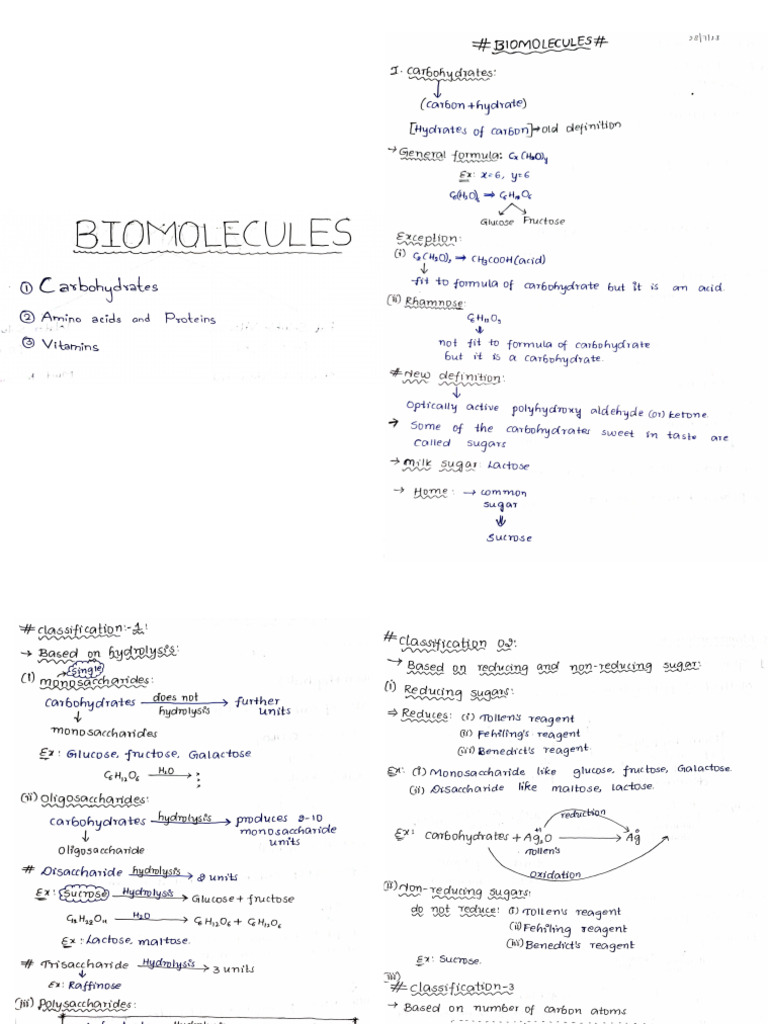 BIOMOLECULES
① Carbohydrates
② Amino acids and Proteins
③ Vitamins
# BIOMOLECULES #
I. Carbohydrates:
(Carbon + hydrate)
[Hydrates of carbon] → old definition
→ General formula: Cx(H2O)y
Ex: x=6, y=6
C6(H2O)6 → C6H12O6
Glucose Fructose
Exception:
(i) C2(H2O)2 → CH3COOH (acid)
fit to formula of carbohydrate but it is an acid
(ii) Rhamnose:
C6H12O5
not fit to formula of carbohydrate
but it is a carbohydrate.
# New definition:
Optically active polyhydroxy aldehyde (or) ketone
→ Some of the carbohydrates sweet in taste are
called sugars
→ milk sugar: Lactose
→ Home: → common
sugar
Sucrose
# classification:-1:
→ Based on hydrolysis:
→ single
(1) monosaccharides:
carbohydrates does not hydrolysis → further
units
monosaccharides
Ex: Glucose, fructose, Galactose
C6H12O6 H2O →
(ii) oligosaccharides:
carbohydrates hydrolysis → produces 2-10
monosaccharide
units
oligosaccharide
# Disaccharide hydrolysis → 2 units
Ex: Sucrose Hydrolysis → Glucose + fructose
C12H22O11 H2O → C6H12O6 + C6H12O6
Ex: Lactose, maltose.
# Trisaccharide Hydrolysis → 3 units
Ex: Raffinose
(iii) Polysaccharides:
# classification 02:
→ Based on reducing and non-reducing sugar:
(i) Reducing sugars:
⇒ Reduces: (i) Tollen's reagent
(ii) Fehiling's reagent
(iii) Benedict's reagent.
Ex: (i) Monosaccharide like glucose, fructose, Galactose.
(ii) Disaccharide like maltose, lactose.
reduction
Ex: Carbohydrates + Ag2O → Ag
Tollen's
oxidation
(ii) Non-reducing sugars:
do not reduce: (i) Tollen's reagent
(ii) Fehiling reagent
(iii) Benedict's reagent
Ex: Sucrose.
(iii)
# classification-3
→ Based on number of carbon atoms